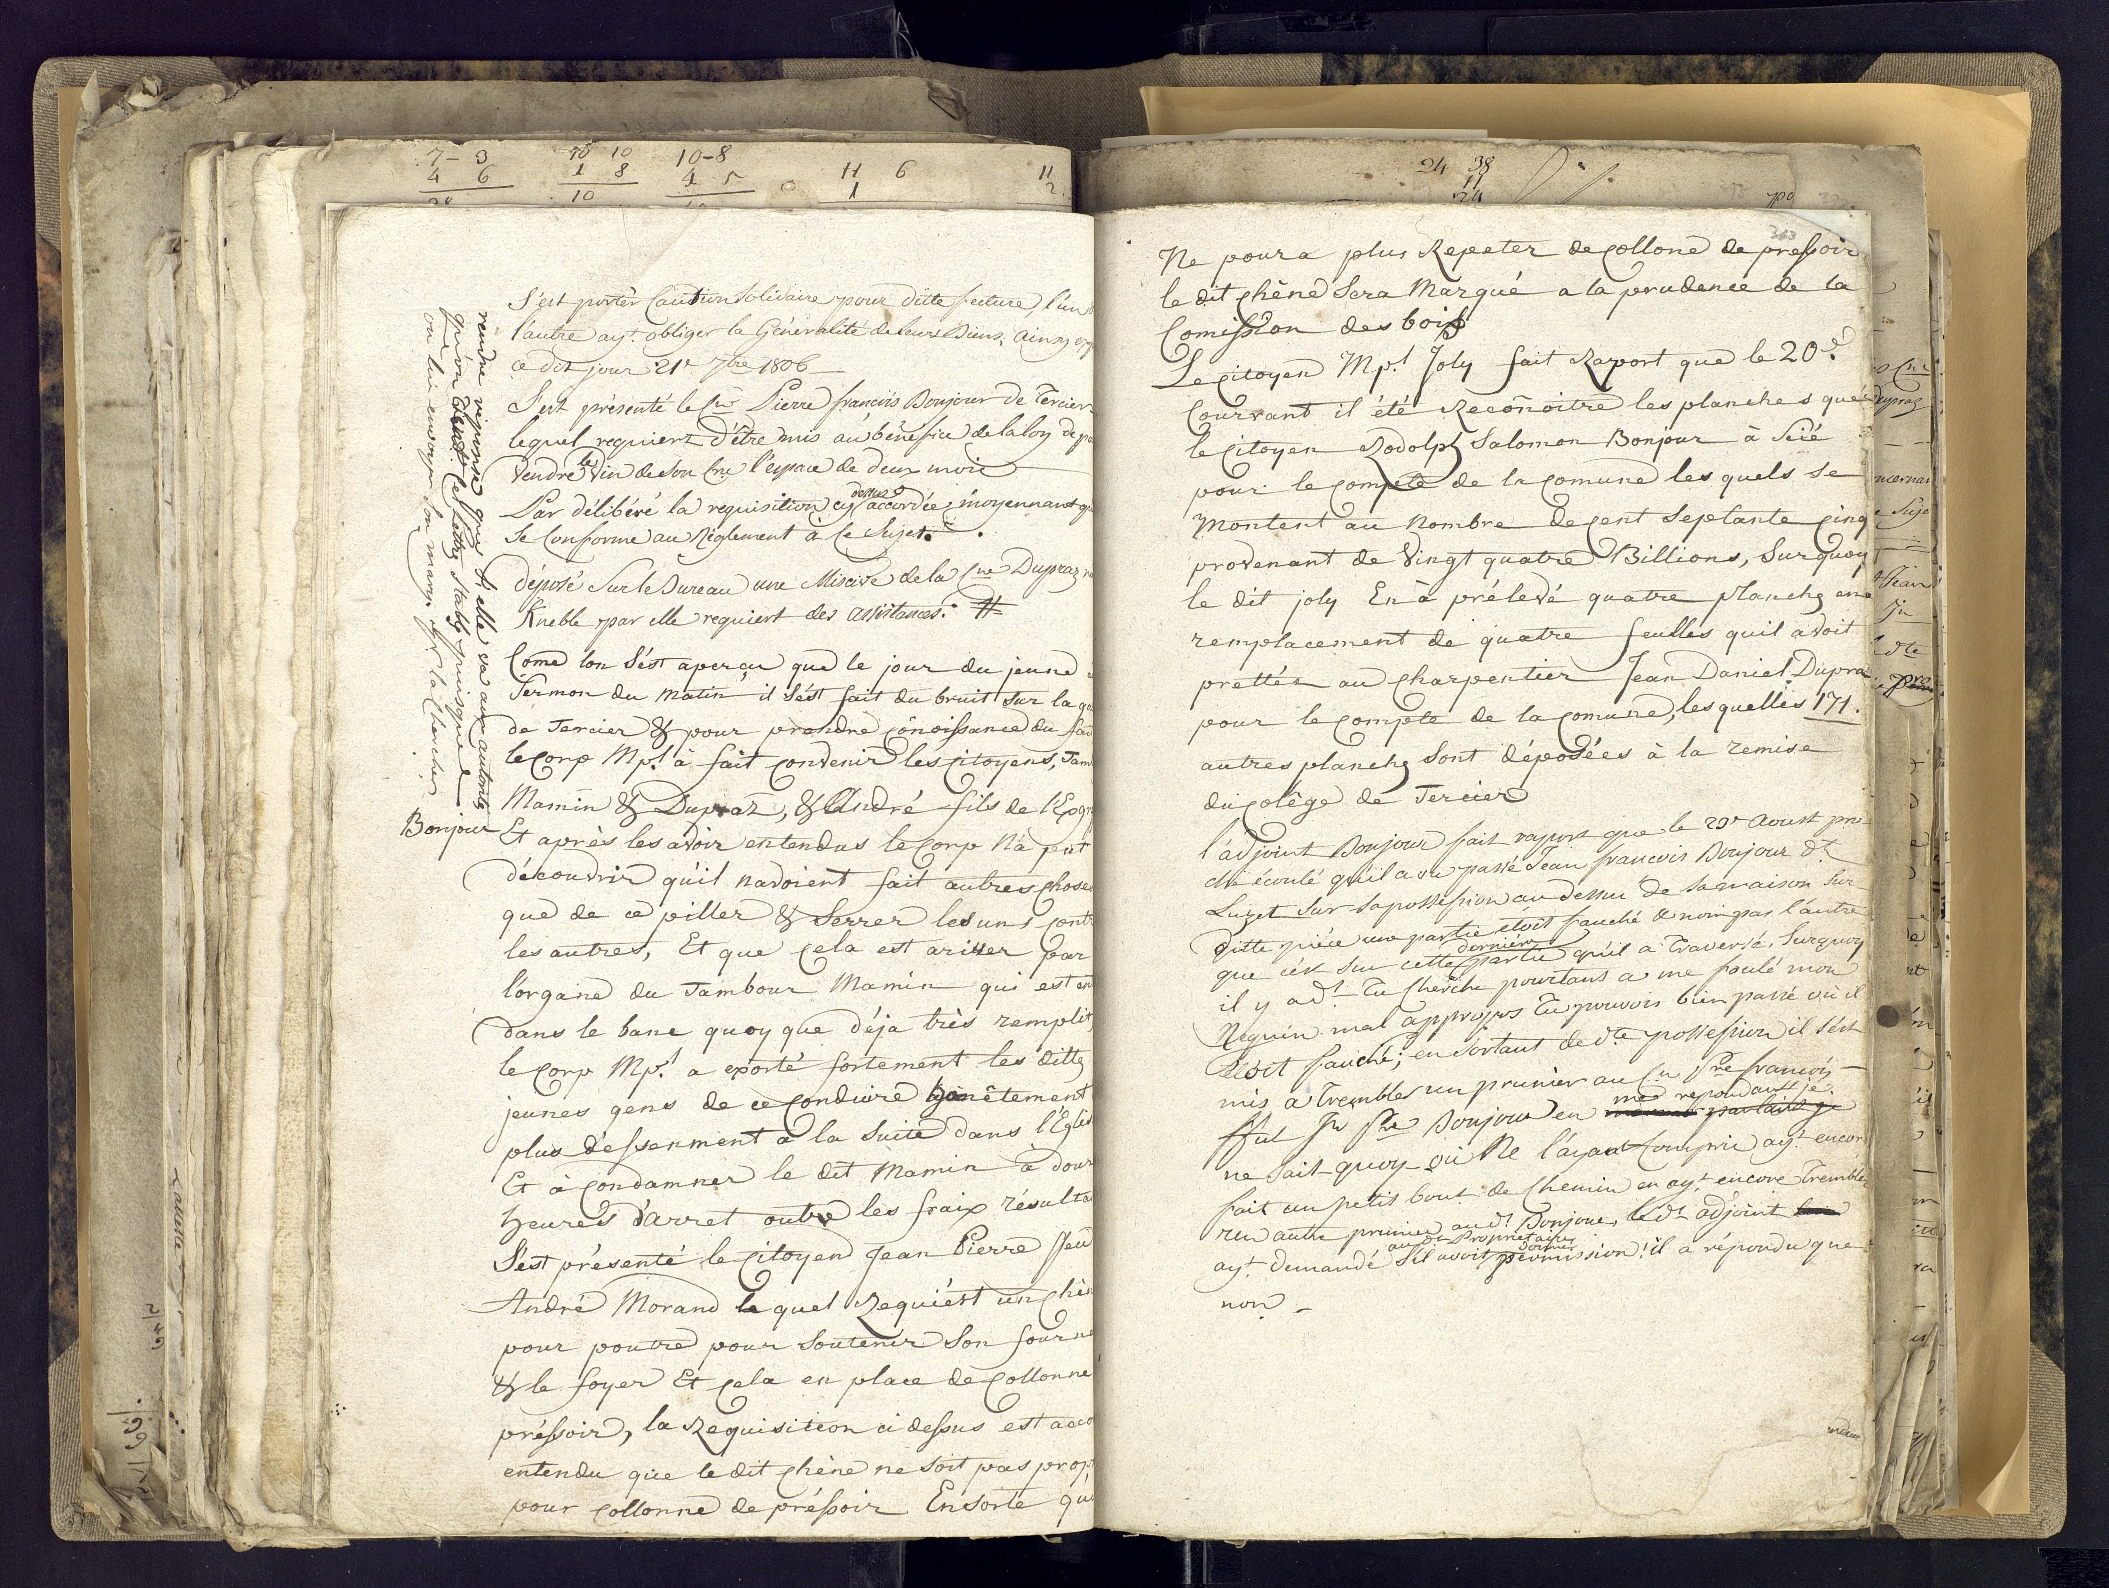 7 - 3
4 6
10 10
1 8
10
10-8
4 5
11 6
1
11
2
S'est porter Caution Solidaire pour ditte fecture, l'un
l'autre ayt. obliger la Généralité de leurs Biens, Ainsy
ce dit jour 21e 7bre 1806
S'est présenté le Cn Pierre françois Bonjour de Tercier
lequel requiert d'être mis au bénéfice de la loy de
Vendre le Vin de son Cru l'espace de deux mois
Par délibéré la requisition cy dessus accordée, moyennant
Se Conforme au Règlement à ce Sujet.
déposé Sur le Bureau une Missive de la Cne Dupraz
Kneble par elle requiert des assistances. #
rendre réponse que si elle va aux autorités
qu'on Lettre Stable puisque
on lui envoye son mary la chercher
Bonjour
Come lon S'est aperçu que le jour du jeune
Sermon du matin, il S'est fait du bruit Sur la
de Tercier & pour prendre cônoissance du
le Corp Mpl à fait convenir les Citoyens, Tam
Mamin & Dupraz, & André fils de l'
Et après les avoir entendus le Corp Nà put
découvrir qu'il navoient fait autres choses
que de ce piller & Serrer les uns contr
les autres, Et que cela est ariver par
l'organe du Tambour Mamin qui est
dans le banc quoy que déja très remplit,
le Corp Mpl a exorté fortement les ditts
jeunes gens de ce conduire honêtement
plus dessenment à la Suite dans l'Eglis
Et à condamner le dit Mamin à
heures d'arret outre les fraix résulta
S'est présenté le Citoyen Jean Pierre
André Morand le quel Requiert un chên
pour poutre pour Soutenir Son fourne
& le foyer Et cela en place de Collonne
préssoir, la Requisition ci dessus est acco
entendu que le dit chêne ne Soit pas prop
pour Collonne de préssoir En sorte qu'
24 38
11
24
po
363
Ne poura plus Repeter de Collone de pressoir
le dit chêne Sera Marqué a la prudence de la
Comission des bois
Le Citoyen Mpl Joly fait Raport que le 20e
Courrant il été Recônoitre les planches que
le Citoyen Rodolph Salomon Bonjour à Scié
pour le Compte de la Comune les quels se
montent au nombre de Cent Septante Cinq
provenant de Vingt quatre Billions, Surquoy
le dit joly En à prélevé quatre planche en
remplacement de quatre feulles quil avoit
prettér au Charpentier Jean Daniel Dupra
pour le Compte de la Comune, les quelles 171.
autres planche Sont déposées à la remise
du Colège de Tercier
l'adjoint Bonjour fait raport que le 29e Aoust
écoulé qu'il a vu passé Jean françois Bonjour dt
Luzet Sur sa possession au dessus de sa maison Sur
ditte pièce une partie étoit fauché & non pas l'autre
que c'ést sur cette dernière partie qu'il à Traversé, Surquoy
il y a dt. Tu Cherche pourtant a me foulé mon
Requin mal appropos Tu pouvois bien passé où il
étoit fauché; en Sortant de dte possession il s'ést
mis à Trembler un prunier au Cn Pre françois
ffeu Jn Pre Bonjour en me repondant je
ne sait quoy ou Ne l'ayant Compris ayt encor
fait un petit bout de Chemin en ayt encore Trembler
un autre prunier au dt. Bonjour, le dt adjoint
ayt. Demandé S'il avoit au dt Propriétaire donné permission! il a répondu que
non